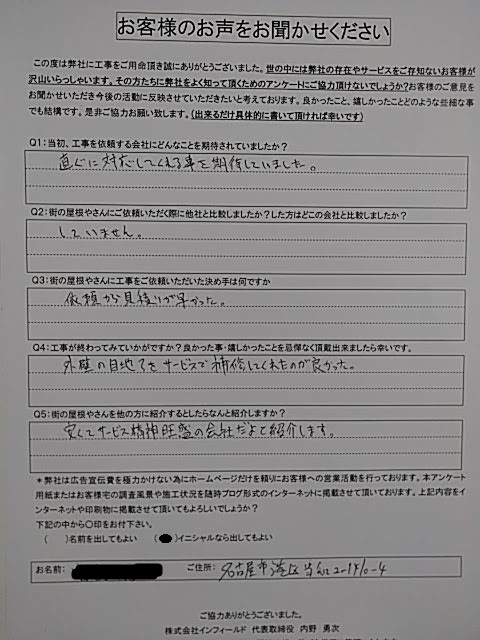 お客様のお声をお聞かせください
この度は弊社に工事をご用命頂き誠にありがとうございました。世の中には弊社の存在やサービスをご存知ないお客様が
沢山いらっしゃいます。その方たちに弊社をよく知って頂くためのアンケートにご協力頂けないでしょうか?お客様のご意見を
お聞かせいただき今後の活動に反映させていただきたいと考えております。良かったこと、嬉しかったことどのような些細な事
でも結構です。是非ご協力お願い致します。(出来るだけ具体的に書いて頂ければ幸いです)
Q1:当初、工事を依頼する会社にどんなことを期待されていましたか?
直ぐに対応してくれる事を期待していました。
Q2:街の屋根やさんにご依頼いただく際に他社と比較しましたか?した方はどこの会社と比較しましたか?
していません。
Q3:街の屋根やさんに工事をご依頼いただいた決め手は何ですか
依頼から見積りが早かった。
Q4:工事が終わってみていかがですか?良かった事・嬉しかったことを忌憚なく頂戴出来ましたら幸いです。
外壁の目地をサービスで補修してくれたのが良かった。
Q5:街の屋根やさんを他の方に紹介するとしたらなんと紹介しますか?
安くてサービス精神旺盛の会社だよと紹介します。
*弊社は広告宣伝費を極力かけない為にホームページだけを頼りにお客様への営業活動を行っております。本アンケート
用紙またはお客様宅の調査風景や施工状況を随時ブログ形式のインターネットに掲載させて頂いております。上記内容をイン
ターネットや印刷物に掲載させて頂いてもよろしいでしょうか?
下記の中から〇印をお付下さい。
( )名前を出してもよい ( )イニシャルなら出してもよい
お名前: ご住所: 名古屋市港区
ご協力ありがとうございました。
株式会社インフィールド 代表取締役 内野 勇次